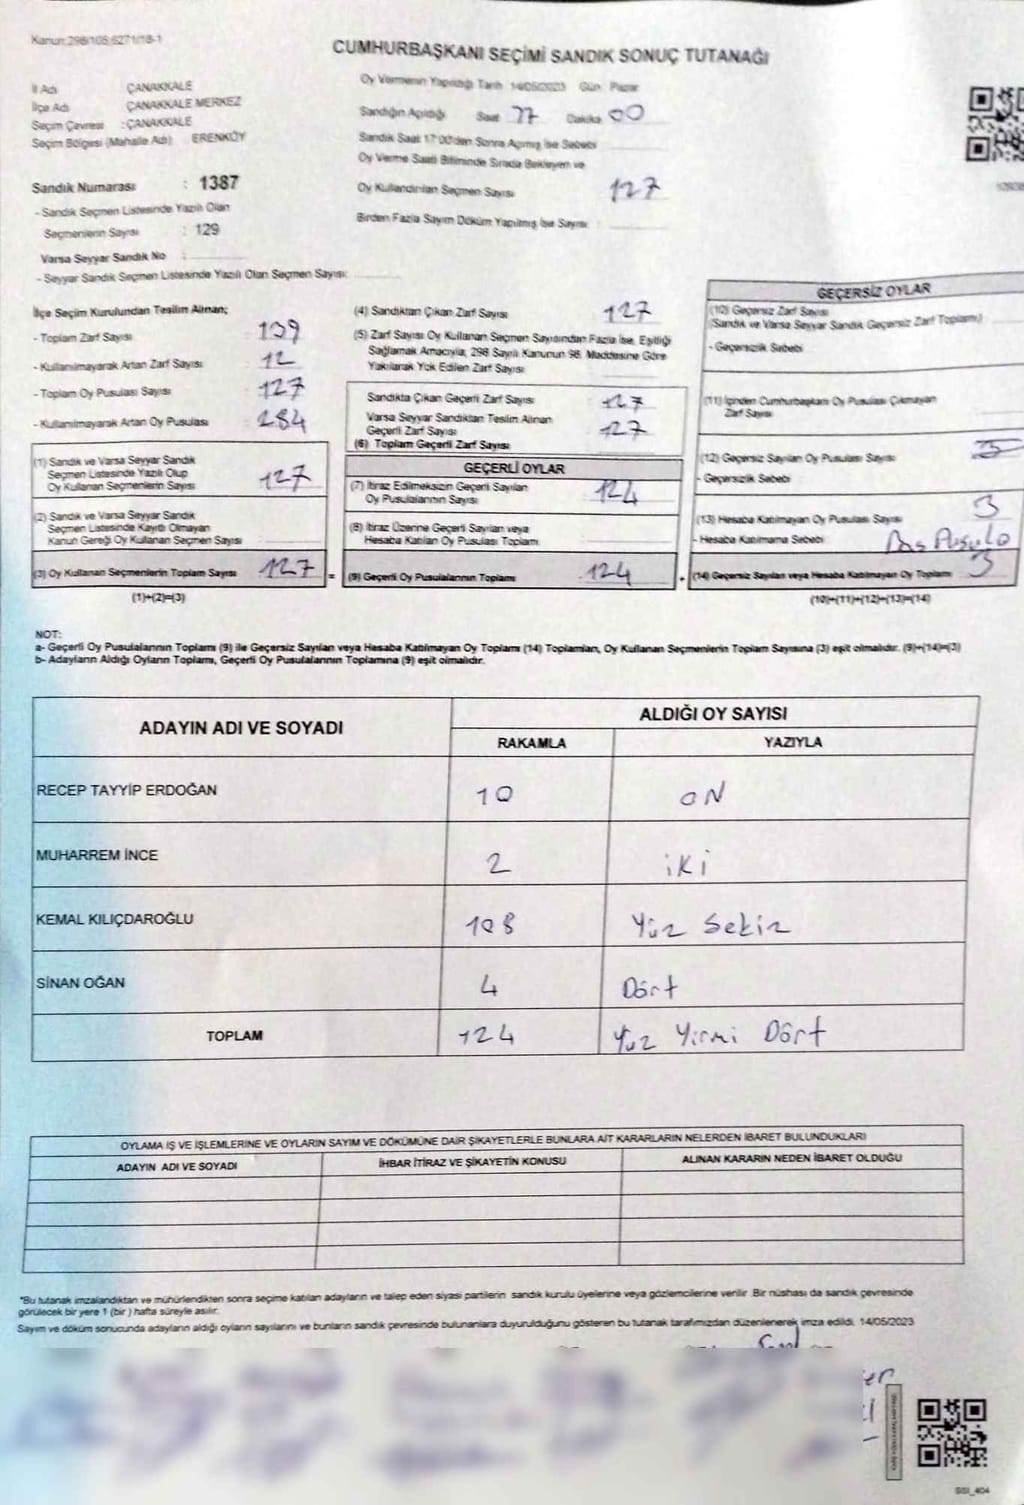 Kanun:298/105,6271/18-1
CUMHURBAŞKANI SEÇİMİ SANDIK SONUÇ TUTANAĞI
İl Adı ÇANAKKALE
İlçe Adı ÇANAKKALE MERKEZ
Seçim Çevresi :ÇANAKKALE
Seçim Bölgesi (Mahalle Adı) ERENKÖY
Sandık Numarası : 1387
- Sandık Seçmen Listesinde Yazılı Olan
Seçmenlerin Sayısı : 129
Varsa Seyyar Sandık No :
- Seyyar Sandık Seçmen Listesinde Yazılı Olan Seçmen Sayısı:
Oy Vermenin Yapıldığı Tarih 14/05/2023 Gün Pazar
Sandığın Açıldığı Saat 17 Dakika 00
Sandık Saat 17:00'den Sonra Açılmış İse Sebebi
Oy Verme Saati Bitiminde Sırada Bekleyen ve
Oy Kullandırılan Seçmen Sayısı 127
Birden Fazla Sayım Döküm Yapılmış İse Sayısı :
İlçe Seçim Kurulundan Teslim Alınan;
- Toplam Zarf Sayısı : 139
- Kullanılmayarak Artan Zarf Sayısı : 12
- Toplam Oy Pusulası Sayısı : 127
- Kullanılmayarak Artan Oy Pusulası : 284
(1) Sandık ve Varsa Seyyar Sandık
Seçmen Listesinde Yazılı Olup
Oy Kullanan Seçmenlerin Sayısı : 127
(2) Sandık ve Varsa Seyyar Sandık
Seçmen Listesinde Kayıtlı Olmayan
Kanun Gereği Oy Kullanan Seçmen Sayısı :
(3) Oy Kullanan Seçmenlerin Toplam Sayısı : 127 =
(1)+(2)=(3)
(4) Sandıktan Çıkan Zarf Sayısı : 127
(5) Zarf Sayısı Oy Kullanan Seçmen Sayısından Fazla İse, Eşitliği
Sağlamak Amacıyla, 298 Sayılı Kanunun 98. Maddesine Göre
Yakılarak Yok Edilen Zarf Sayısı :
Sandıkta Çıkan Geçerli Zarf Sayısı : 127
Varsa Seyyar Sandıktan Teslim Alınan
Geçerli Zarf Sayısı : 127
(6) Toplam Geçerli Zarf Sayısı
GEÇERLİ OYLAR
(7) İtiraz Edilmeksizin Geçerli Sayılan
Oy Pusulalarının Sayısı : 124
(8) İtiraz Üzerine Geçerli Sayılan veya
Hesaba Katılan Oy Pusulası Toplamı :
(9) Geçerli Oy Pusulalarının Toplamı : 124 +
GEÇERSİZ OYLAR
(10) Geçersiz Zarf Sayısı
(Sandık ve Varsa Seyyar Sandık Geçersiz Zarf Toplamı) :
- Geçersizlik Sebebi
(11) İçinden Cumhurbaşkanı Oy Pusulası Çıkmayan
Zarf Sayısı
(12) Geçersiz Sayılan Oy Pusulası Sayısı :
- Geçersizlik Sebebi
(13) Hesaba Katılmayan Oy Pusulası Sayısı : 3
- Hesaba Katılmama Sebebi : Pusula
(14) Geçersiz Sayılan veya Hesaba Katılmayan Oy Toplamı : 3
(10)+(11)+(12)+(13)=(14)
NOT:
a- Geçerli Oy Pusulalarının Toplamı (9) ile Geçersiz Sayılan veya Hesaba Katılmayan Oy Toplamı (14) Toplamları, Oy Kullanan Seçmenlerin Toplam Sayısına (3) eşit olmalıdır. (9)+(14)=(3)
b- Adayların Aldığı Oyların Toplamı, Geçerli Oy Pusulalarının Toplamına (9) eşit olmalıdır.
ADAYIN ADI VE SOYADI ALDIĞI OY SAYISI
RAKAMLA YAZIYLA
RECEP TAYYİP ERDOĞAN 10 ON
MUHARREM İNCE 2 iki
KEMAL KILIÇDAROĞLU 108 Yüz Sekiz
SİNAN OĞAN 4 Dört
TOPLAM 124 Yüz Yirmi Dört
OYLAMA İŞ VE İŞLEMLERİNE VE OYLARIN SAYIM VE DÖKÜMÜNE DAİR ŞİKAYETLERLE BUNLARA AİT KARARLARIN NELERDEN İBARET BULUNDUKLARI
ADAYIN ADI VE SOYADI İHBAR İTİRAZ VE ŞİKAYETİN KONUSU ALINAN KARARIN NEDEN İBARET OLDUĞU
*Bu tutanak imzalandıktan ve mühürlendikten sonra seçime katılan adayların ve talep eden siyasi partilerin sandık kurulu üyelerine veya gözlemcilerine verilir. Bir nüshası da sandık çevresinde
görülecek bir yere 1 (bir ) hafta süreyle asılır.
Sayım ve döküm sonucunda adayların aldığı oyların sayılarını ve bunların sandık çevresinde bulunanlara duyurulduğunu gösteren bu tutanak tarafımızdan düzenlenerek imza edildi. 14/05/2023
SSI_404